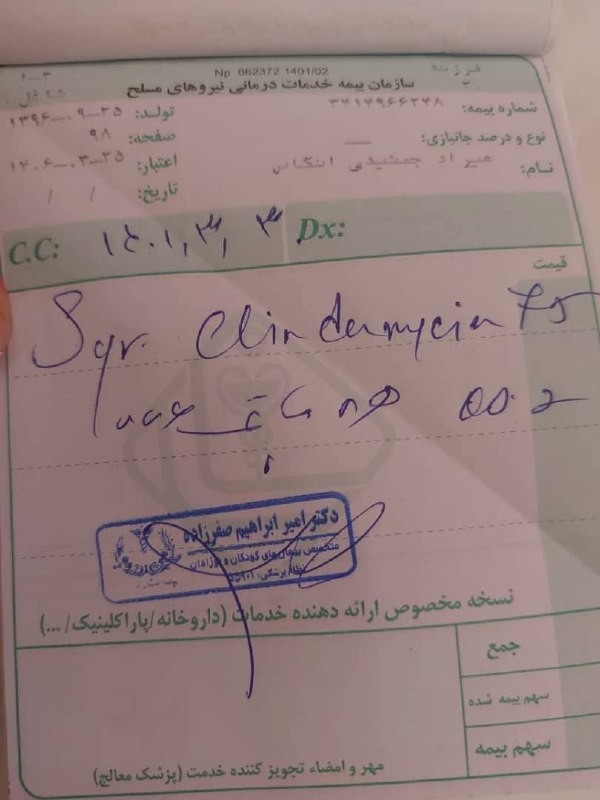 Np 862372 1401/02
سازمان بیمه خدمات درمانی نیروهای مسلح
شماره بیمه:
تولد: ۱۳۹۶-۰۹-۲۵
نوع و درصد جانبازی:
صفحه: ۹۸
نام: جمشیدی
اعتبار: ۱۴۰۶-۰۳-۲۵
تاریخ: / /
C.C: Dx:
قیمت
Syr. Clindamycin 75
هر ساعت
دکتر امیر ابراهیم صفرزاده
متخصص بیماریهای کودکان و نوزادان
نظام پزشکی:
نسخه مخصوص ارائه دهنده خدمات (داروخانه/پاراکلینیک/...)
جمع
سهم بیمه شده
سهم بیمه
مهر و امضاء تجویز کننده خدمت (پزشک معالج)